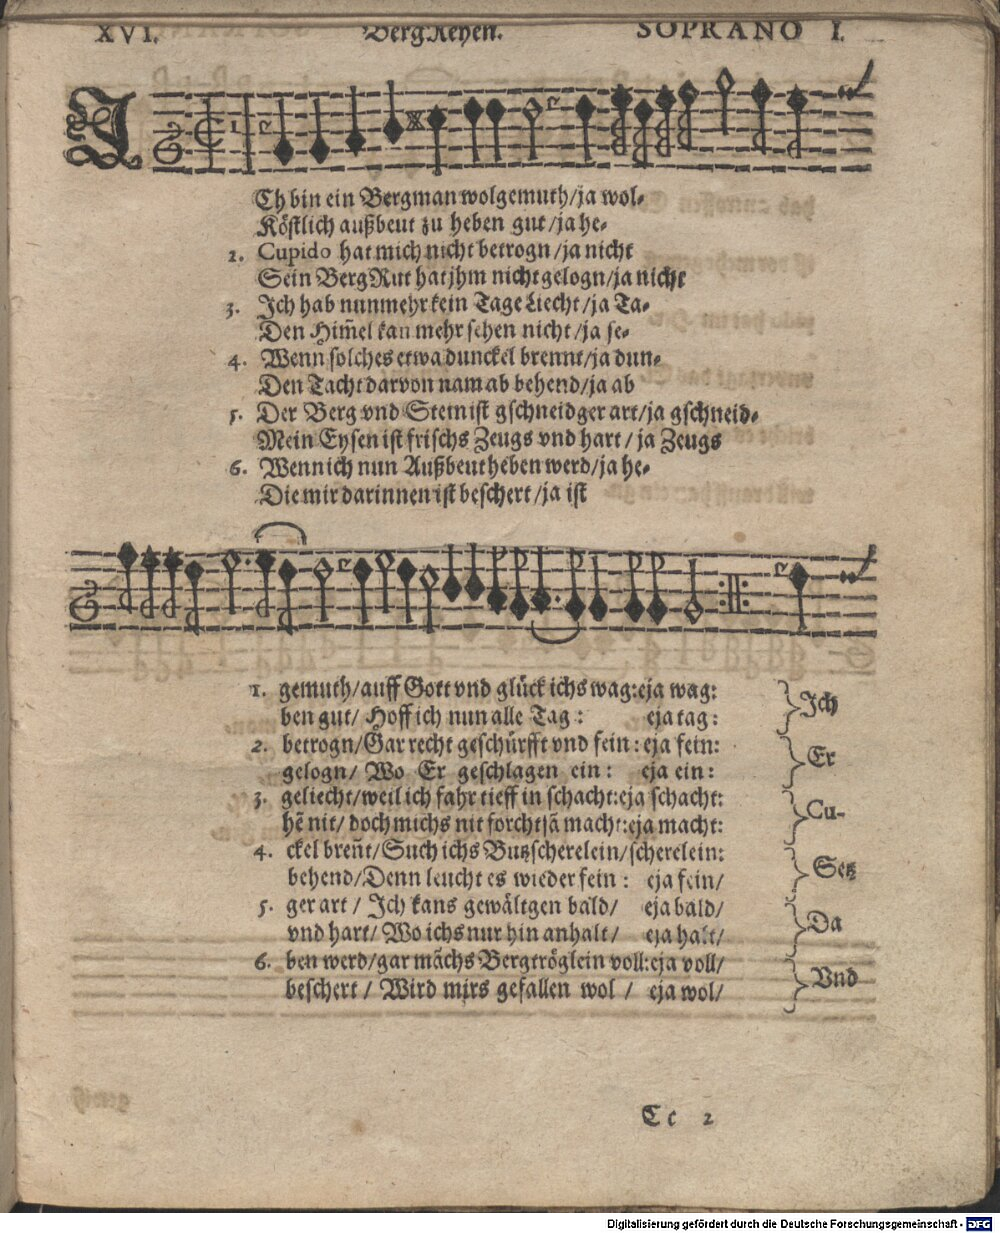 XVI. BergReyen. SOPRANO I.
ICh bin ein Bergman wolgemuth/ja wol-
Köstlich außbeut zu heben gut/ja he-
2. Cupido hat mich nicht betrogn/ja nicht
Sein BergRut hat jhm nicht gelogn/ja nicht
3. Ich hab nunmehr kein Tage Liecht/ja Ta-
Den Him̃el kan mehr sehen nicht/ja se-
4. Wenn solches etwa dunckel brennt/ja dun-
Den Tacht darvon nam ab behend/ja ab
5. Der Berg vnd Stein ist gschneidger art/ja gschneid-
Mein Eysen ist frischs Zeugs vnd hart/ja Zeugs
6. Wenn ich nun Außbeut heben werd/ja he-
Die mir darinnen ist beschert/ja ist
1. gemuth/auff Gott vnd glück ichs wag:eja wag: Ich
ben gut/ Hoff ich nun alle Tag: eja tag:
2. betrogn/Gar recht geschürfft vnd fein: eja fein: Er
gelogn/ Wo Er geschlagen ein: eja ein:
3. geliecht/weil ich fahr tieff in schacht:eja schacht: Cu-
hẽ nit/ doch michs nit forchtsã macht:eja macht:
4. ckel breñt/Such ichs Butzscherelein/scherelein: Setz
behend/Denn leucht es wieder fein: eja fein/
5. ger art/ Ich kans gewältgen bald/ eja bald/ Da
vnd hart/ Wo ichs nur hin anhalt/ eja halt/
6. ben werd/gar mãchs Bergtröglein voll:eja voll/ Vnd
beschert/ Wird mirs gefallen wol/ eja wol/
Cc 2
Digitalisierung gefördert durch die Deutsche Forschungsgemeinschaft - DFG